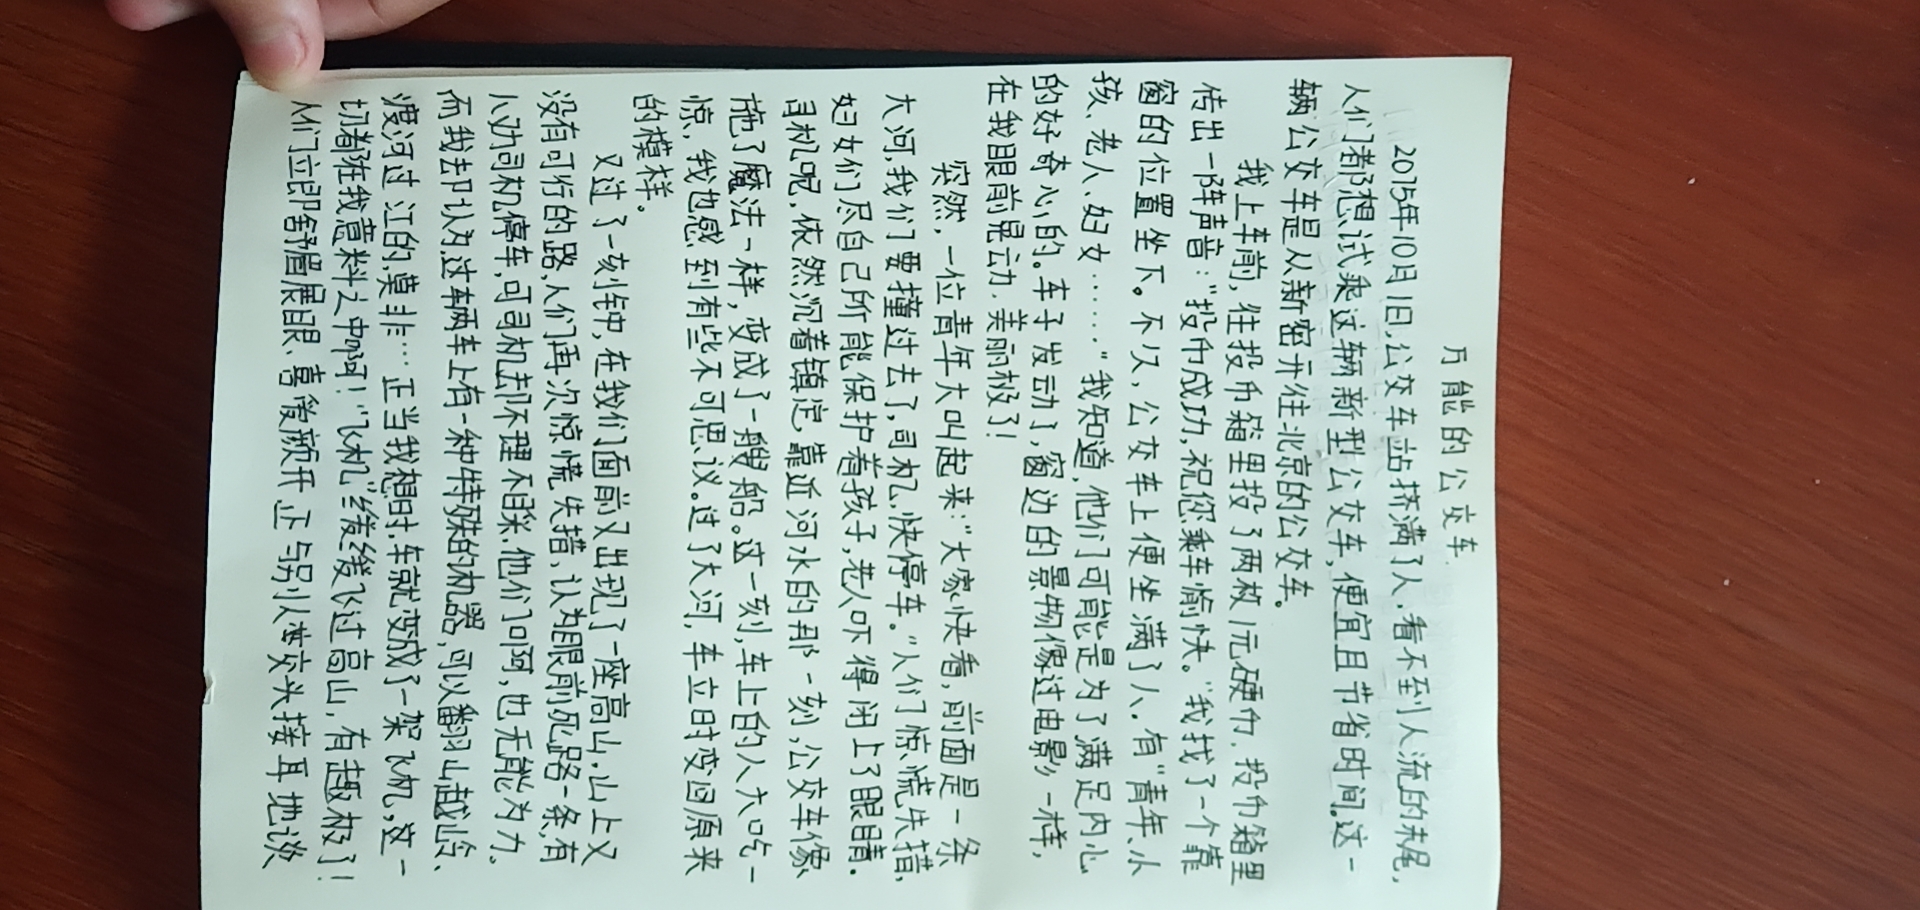 万能的公交车
2075年10月1日,公交车站挤满了人,看不到人流的末尾,
人们都想试乘这辆新型公交车,便宜且节省时间。这一
辆公交车是从新密开往北京的公交车。
我上车前,往投币箱里投了两枚1元硬币,投币箱里
传出一阵声音:“投币成功,祝您乘车愉快。”我找了一个靠
窗的位置坐下。不久,公交车上便坐满了人,有“青年、小
孩、老人、妇女……”我知道,他们可能是为了满足内心
的好奇心的。车子发动了,窗边的景物像过电影一样,
在我眼前晃动,美丽极了!
突然,一位青年大叫起来:“大家快看,前面是一条
大河,我们要撞过去了,司机,快停车。”人们惊慌失措,
妇女们尽自己所能保护着孩子,老人吓得闭上了眼睛。
司机呢,依然沉着镇定,靠近河水的那一刻,公交车像
施了魔法一样,变成了一艘船。这一刻,车上的人大吃一
惊,我也感到有些不可思议。过了大河,车立时变回原来
的模样。
又过了一刻钟,在我们面前又出现了一座高山,山上又
没有可行的路,人们再次惊慌失措,认为眼前死路一条,有
人劝司机停车,可司机却不理不睬,他们啊,也无能为力。
而我却认为,这辆车上有一种特殊的机器,可以翻山越岭、
渡河过江的,莫非…正当我想时,车就变成了一架飞机,这一
切都在我意料之中啊!“飞机”缓缓飞过高山,有趣极了!
人们立即舒眉展眼、喜笑颜开,正与别人交头接耳地谈